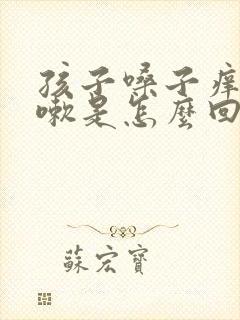 孩子嗓子痒
嗽是怎麼回
蘇宏寶